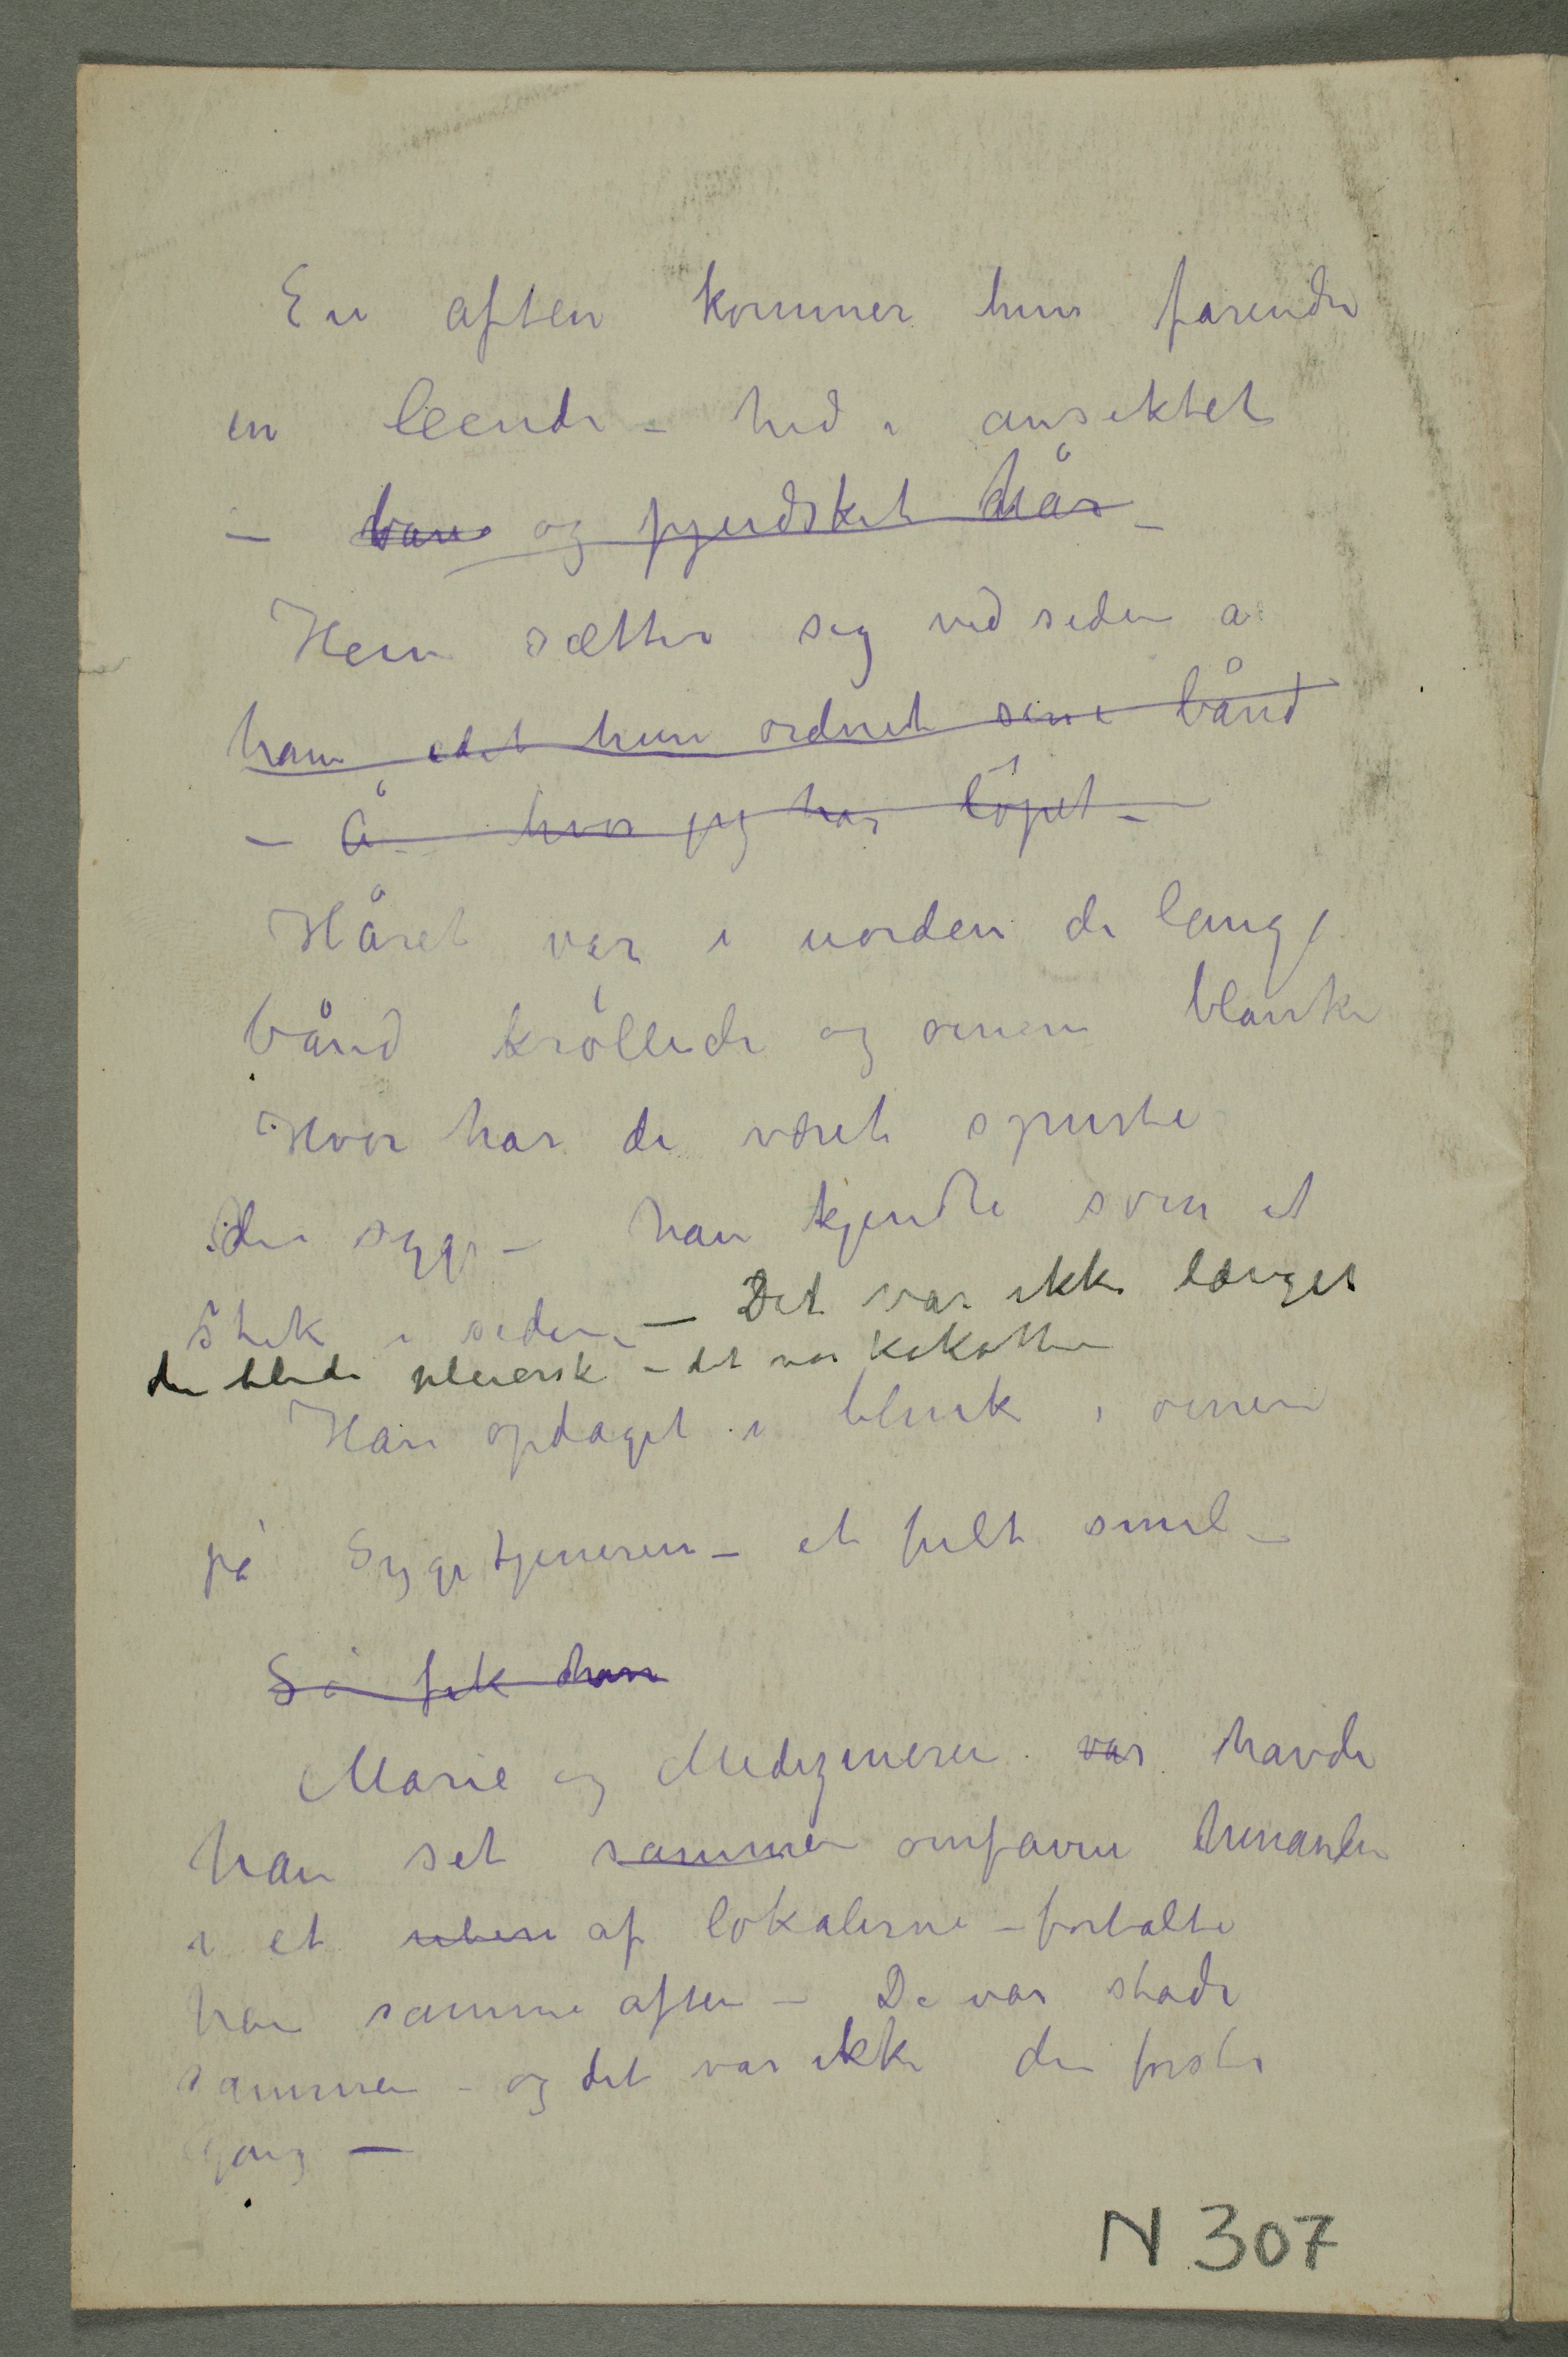 En aften kommer hun farende
in leende – hed i ansiktet
– vans og fjerdsket hår –
Hun sætter seg ved siden a
ham idet hun ordnet sine bånd
– Å hvor jeg har löpet –
Håret var i uorden de lange
bånd kröllede og öinene blanke
Hvor har de været spurte
den syge – han kjendte som et
stik i siden – Det var ikke længer
den blide pleierske – det var kokotten
Han opdaget i blink i öinene
på Sygetjeneren – et fult smil –
Så fik han
Marie og Medizineren var havde
han set sammen omfavne hinanden
i et af lokalerne – fortalte
han samme aften – De var stadi
sammen – og det var ikke den forste
gang –
N 307